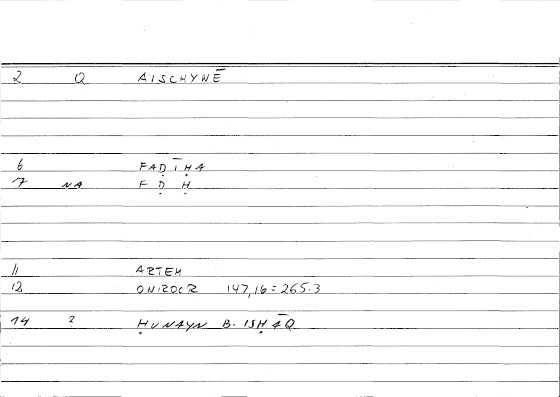 2 Q AISCHYNĒ
6 FAḌĪḤA
7 NA F Ḍ Ḥ
11 ARTEM
12 ONIROCR 147,16 = 265.3
14 ? ḤUNAYN B. ISḤĀQ